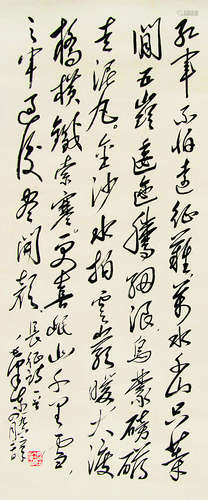 紅軍不怕遠征難萬水千山只等
閒五嶺逶迤騰細浪烏蒙磅礴
走泥丸。金沙水拍雲崖暖大渡
橋橫鐵索寒。更喜岷山千里雪
三軍過後盡開顏。長征詩一首
毛澤東